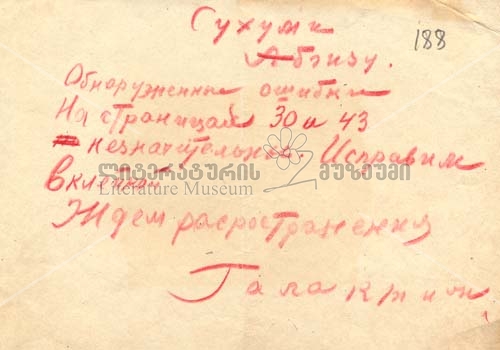 Сухуми
188
Абгизу.
Обнаруженные ошибки
На страницах 30 и 43
незначительны. Исправим
ლიტერატურის მუზეუმი
Literature Museum
вклейкой
Ждем распространения
Галактион